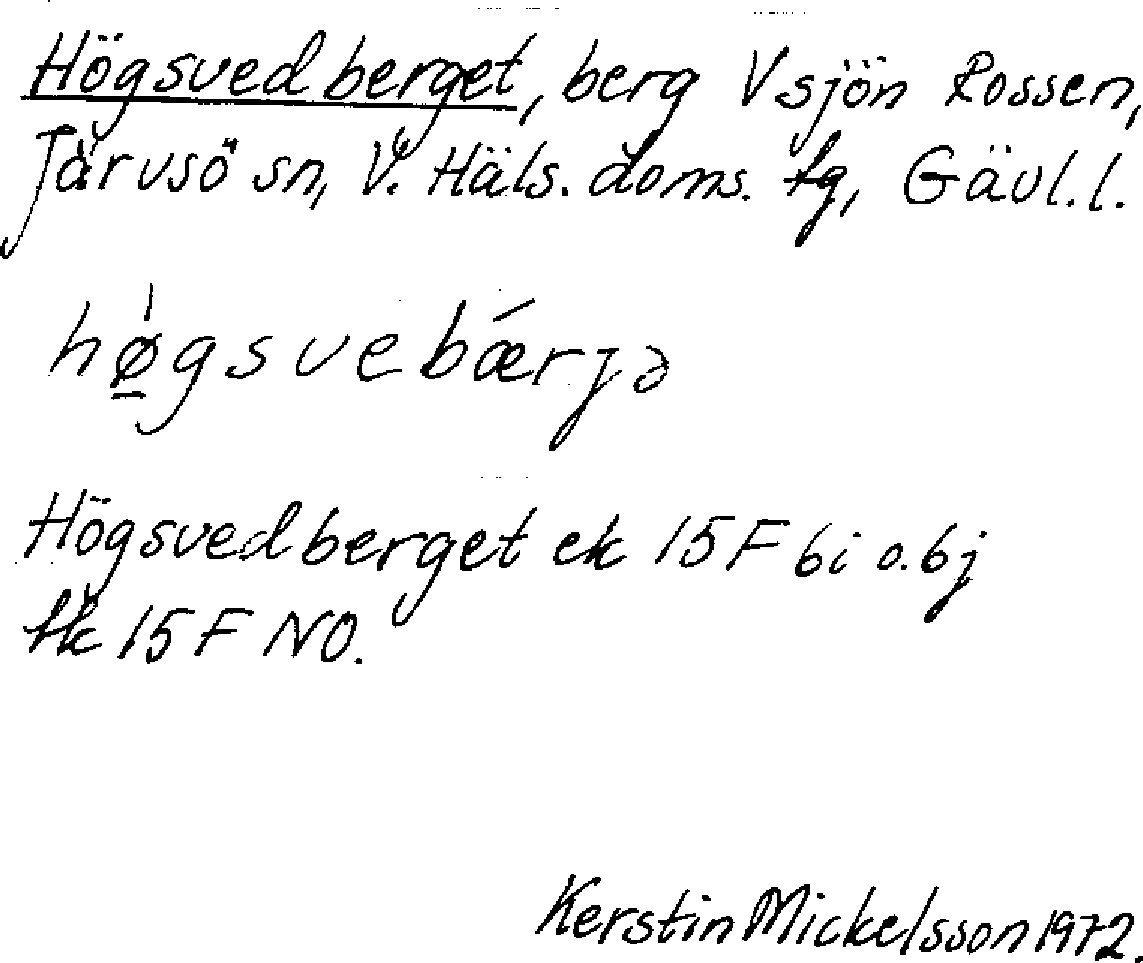 Högsvedberget, berg V sjön Rossen,
Järvsö sn, V. Häls. doms. tg, Gävl. l.
hǿ̱gsvebǽrjə
Högsvedberget ek 15F 6i o. 6j
tk 15F NO.
Kerstin Mickelsson 1972.